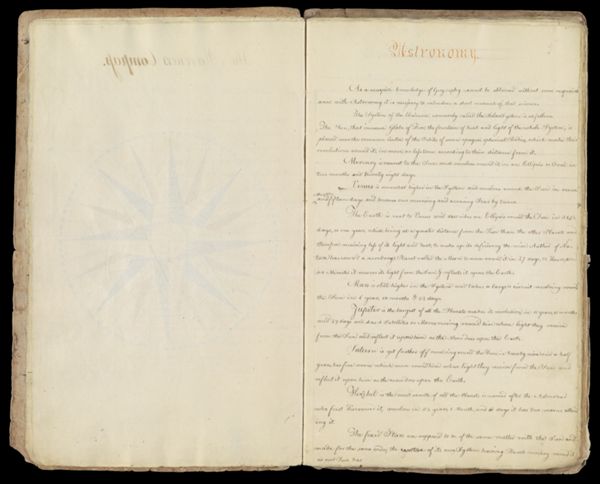 Astronomy.
As a complete knowledge of Geography cannot be obtained without some acquaint-
ance with Astronomy it is necessary to introduce a short account of that science.
The System of the Universe, commonly called the Solar System, is as follows.
The Sun, that immense Globe of Fire, the fountain of heat and light of the whole System, is
placed near the common center of the Orbits of seven opaque spherical Bodies, which make their
revolutions round it, in more or less time, according to their distance from it.
Mercury is nearest to the Sun and revolves round it in an Ellipsis or Oval in
two months and twenty eight days.
Venus is somewhat higher in the System and revolves round the Sun in seven
months days and becomes our morning and evening Star by turns.
The Earth is next to Venus and describes an Ellipsis round the Sun in 365
days, or one year, which being at a greater distance from the Sun than the other Planets and
therefore receiving less of its light and heat, to make up its deficiency the wise Author of Na-
ture has a secondary Planet called the Moon to move round it in 27 days,
Minutes it receives its light from the Sun & reflects it upon the Earth.
Mars is still higher in the System and takes a larger circuit revolving round
the Sun in 1 year, 10 months & 22 days.
Jupiter is the largest of all the Planets makes its revolution in 11 years, 10 months
and 27 days and has 4 Satellites or Moons moving round him whose light they receive
from the Sun and reflect it upon him as the Moon does upon the Earth.
Saturn is yet farther off revolving round the Sun in twenty nine and a half
years, has five moons which move round him whose light they receive from the Sun and
reflect it upon him as the moon does upon the Earth.
Herschel is the most remote of all the Planets is named after the Astronomer
who first discovered it, revolves in 82 years 1 Month, and days it has two moons attend-
ing it.
The fixed Stars are supposed to be of the same matter with the Sun and
made for the same end, the of its own System having Planets moving round it
as our Sun has.